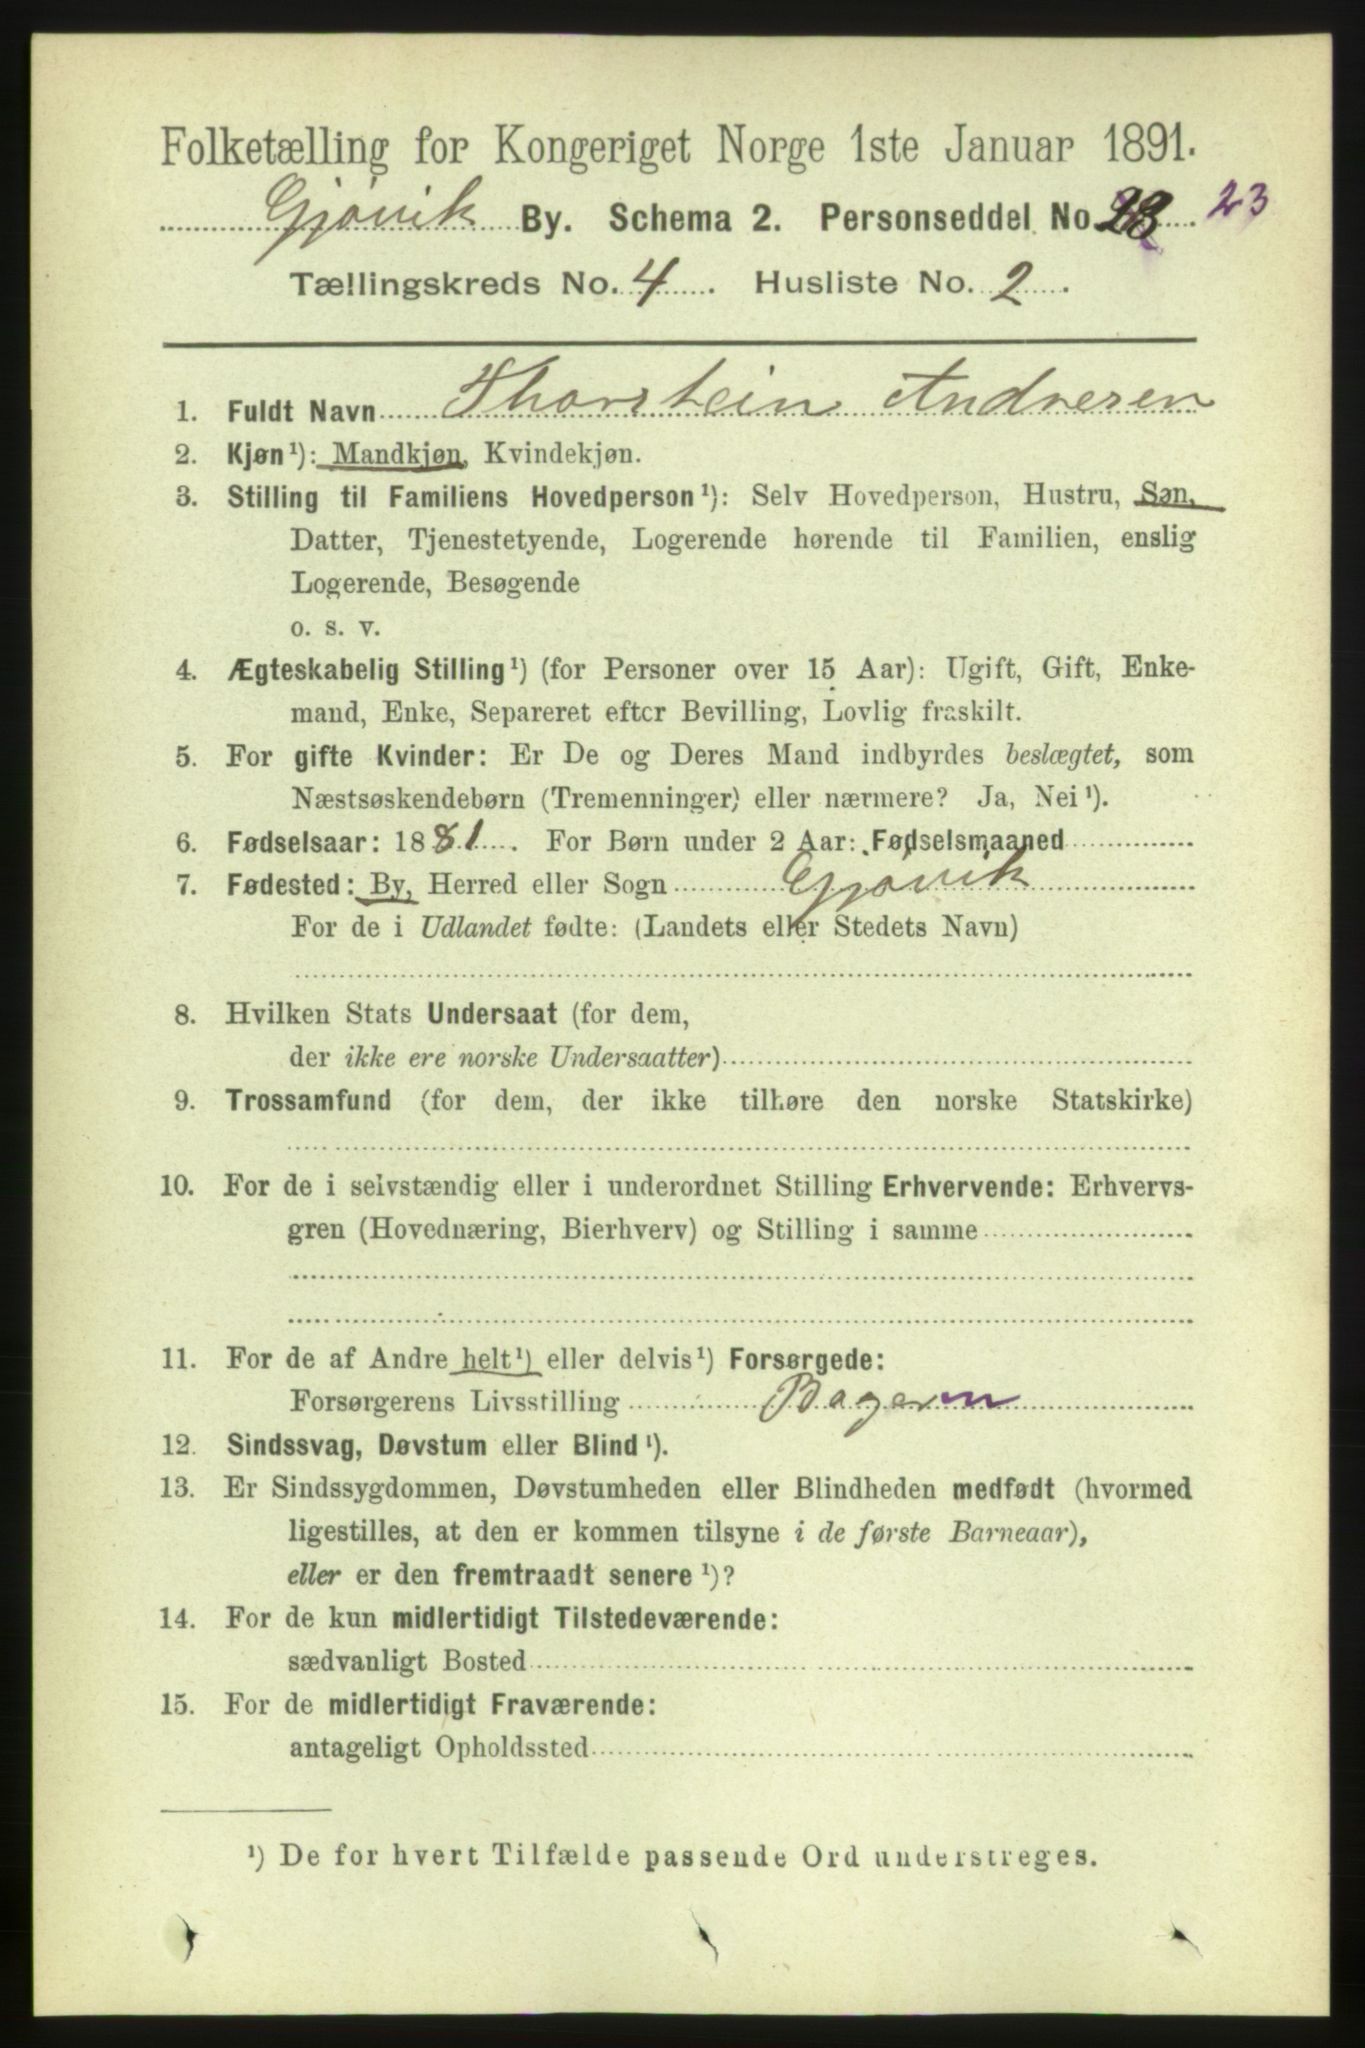 Folketælling for Kongeriget Norge 1ste Januar 1891.
Gjøvik By. Schema 2. Personseddel No. 23
Tællingskreds No. 4. Husliste No. 2.
1. Fuldt Navn Thorstein Andresen
2. Kjøn¹): Mandkjøn, Kvindekjøn.
3. Stilling til Familiens Hovedperson¹): Selv Hovedperson, Hustru, Søn,
Datter, Tjenestetyende, Logerende hørende til Familien, enslig
Logerende, Besøgende
o. s. v.
4. Ægteskabelig Stilling¹) (for Personer over 15 Aar): Ugift, Gift, Enke-
mand, Enke, Separeret efter Bevilling, Lovlig fraskilt.
5. For gifte Kvinder: Er De og Deres Mand indbyrdes beslægtet, som
Næstsøskendebørn (Tremenninger) eller nærmere? Ja, Nei¹).
6. Fødselsaar: 1881. For Børn under 2 Aar: Fødselsmaaned
7. Fødested: By, Herred eller Sogn Gjøvik
For de i Udlandet fødte: (Landets eller Stedets Navn)
8. Hvilken Stats Undersaat (for dem,
der ikke ere norske Undersaatter)
9. Trossamfund (for dem, der ikke tilhøre den norske Statskirke)
10. For de i selvstændig eller i underordnet Stilling Erhvervende: Erhvervs-
gren (Hovednæring, Bierhverv) og Stilling i samme
11. For de af Andre helt¹) eller delvis¹) Forsørgede:
Forsørgerens Livsstilling Bagerm
12. Sindssvag, Døvstum eller Blind¹).
13. Er Sindssygdommen, Døvstumheden eller Blindheden medfødt (hvormed
ligestilles, at den er kommen tilsyne i de første Barneaar),
eller er den fremtraadt senere¹)?
14. For de kun midlertidigt Tilstedeværende:
sædvanligt Bosted
15. For de midlertidigt Fraværende:
antageligt Opholdssted
¹) De for hvert Tilfælde passende Ord understreges.